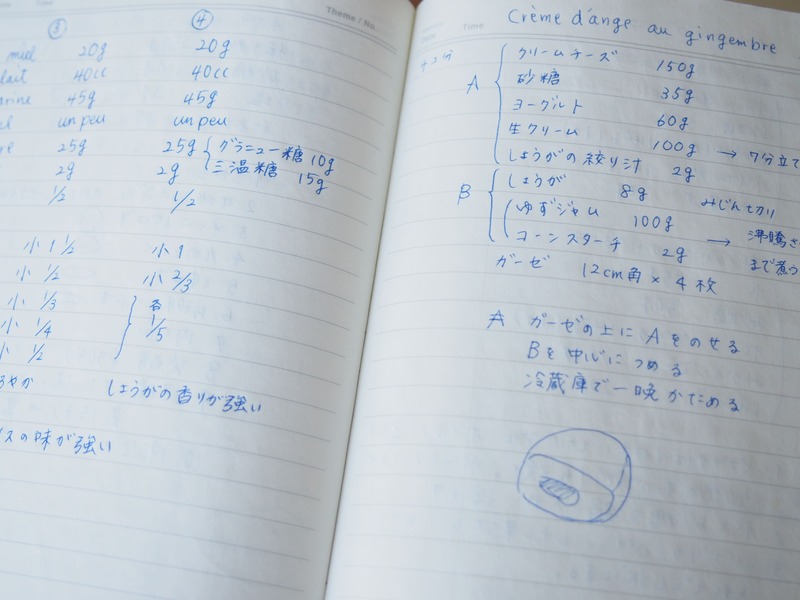 Theme / No.
③ ④
miel 20g 20g
lait 40cc 40cc
45g 45g
un peu un peu
25g 25g { グラニュー糖 10g
三温糖 15g
2g 2g
1/2 1/2
小 1 1/2 小 1
小 1/2 小 2/3
小 1/3 各
小 1/4 1/5
小 1/2
しょうがの香りが強い
スの味が強い
Time
Crème d'ange au gingembre
4コ分
A クリームチーズ 150g
砂糖 35g
ヨーグルト 60g
生クリーム 100g → 7分立て
しょうがの絞り汁 2g
B しょうが 8g みじん切り
ゆずジャム 100g
コーンスターチ 2g → 沸騰さ
まで煮つ
ガーゼ 12cm角 × 4枚
ガーゼの上に Aをのせる
Bを中心につめる
冷蔵庫で一晩かためる